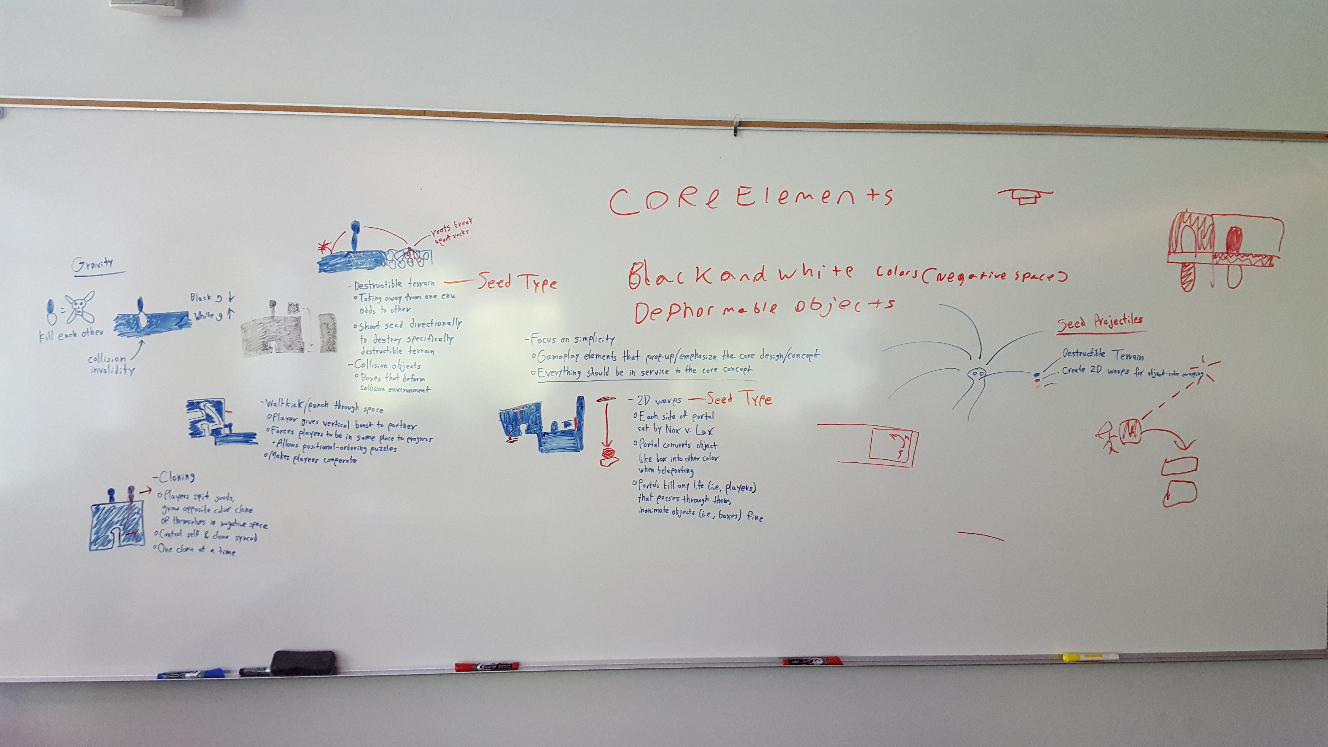 CORe Elements
Black and white colors (negative space)
Dephormable objects
Gravity
kill each other
collision
invalidity
Black g ↓
White g ↑
roots break
apart rocks
- Destructible terrain — Seed Type
Taking away from one env
adds to other
Shoot seed directionally
to destroy specifically
destructible terrain
- Collision objects
Boxes that deform
collision environment
- Wallkick/punch through space
Player gives vertical boost to partner
Forces players to be in same place to progress
Allows positional-ordering puzzles
Makes players cooperate
- Cloning
Players spit seeds,
grow opposite color clone
of themselves in negative space
Control self & clone synced
One clone at a time
- Focus on simplicity
Gameplay elements that prop-up/emphasize the core design/concept
Everything should be in service to the core concept
- 2D waves — Seed Type
Each side of portal
set by Nox v. Lux
Portal converts object
like box into other color
when teleporting
Portals kill any life (i.e., players)
that passes through them,
inanimate objects (i.e., boxes) fine
Seed Projectiles
Destructible Terrain
Create 2D waves for object-color swapping